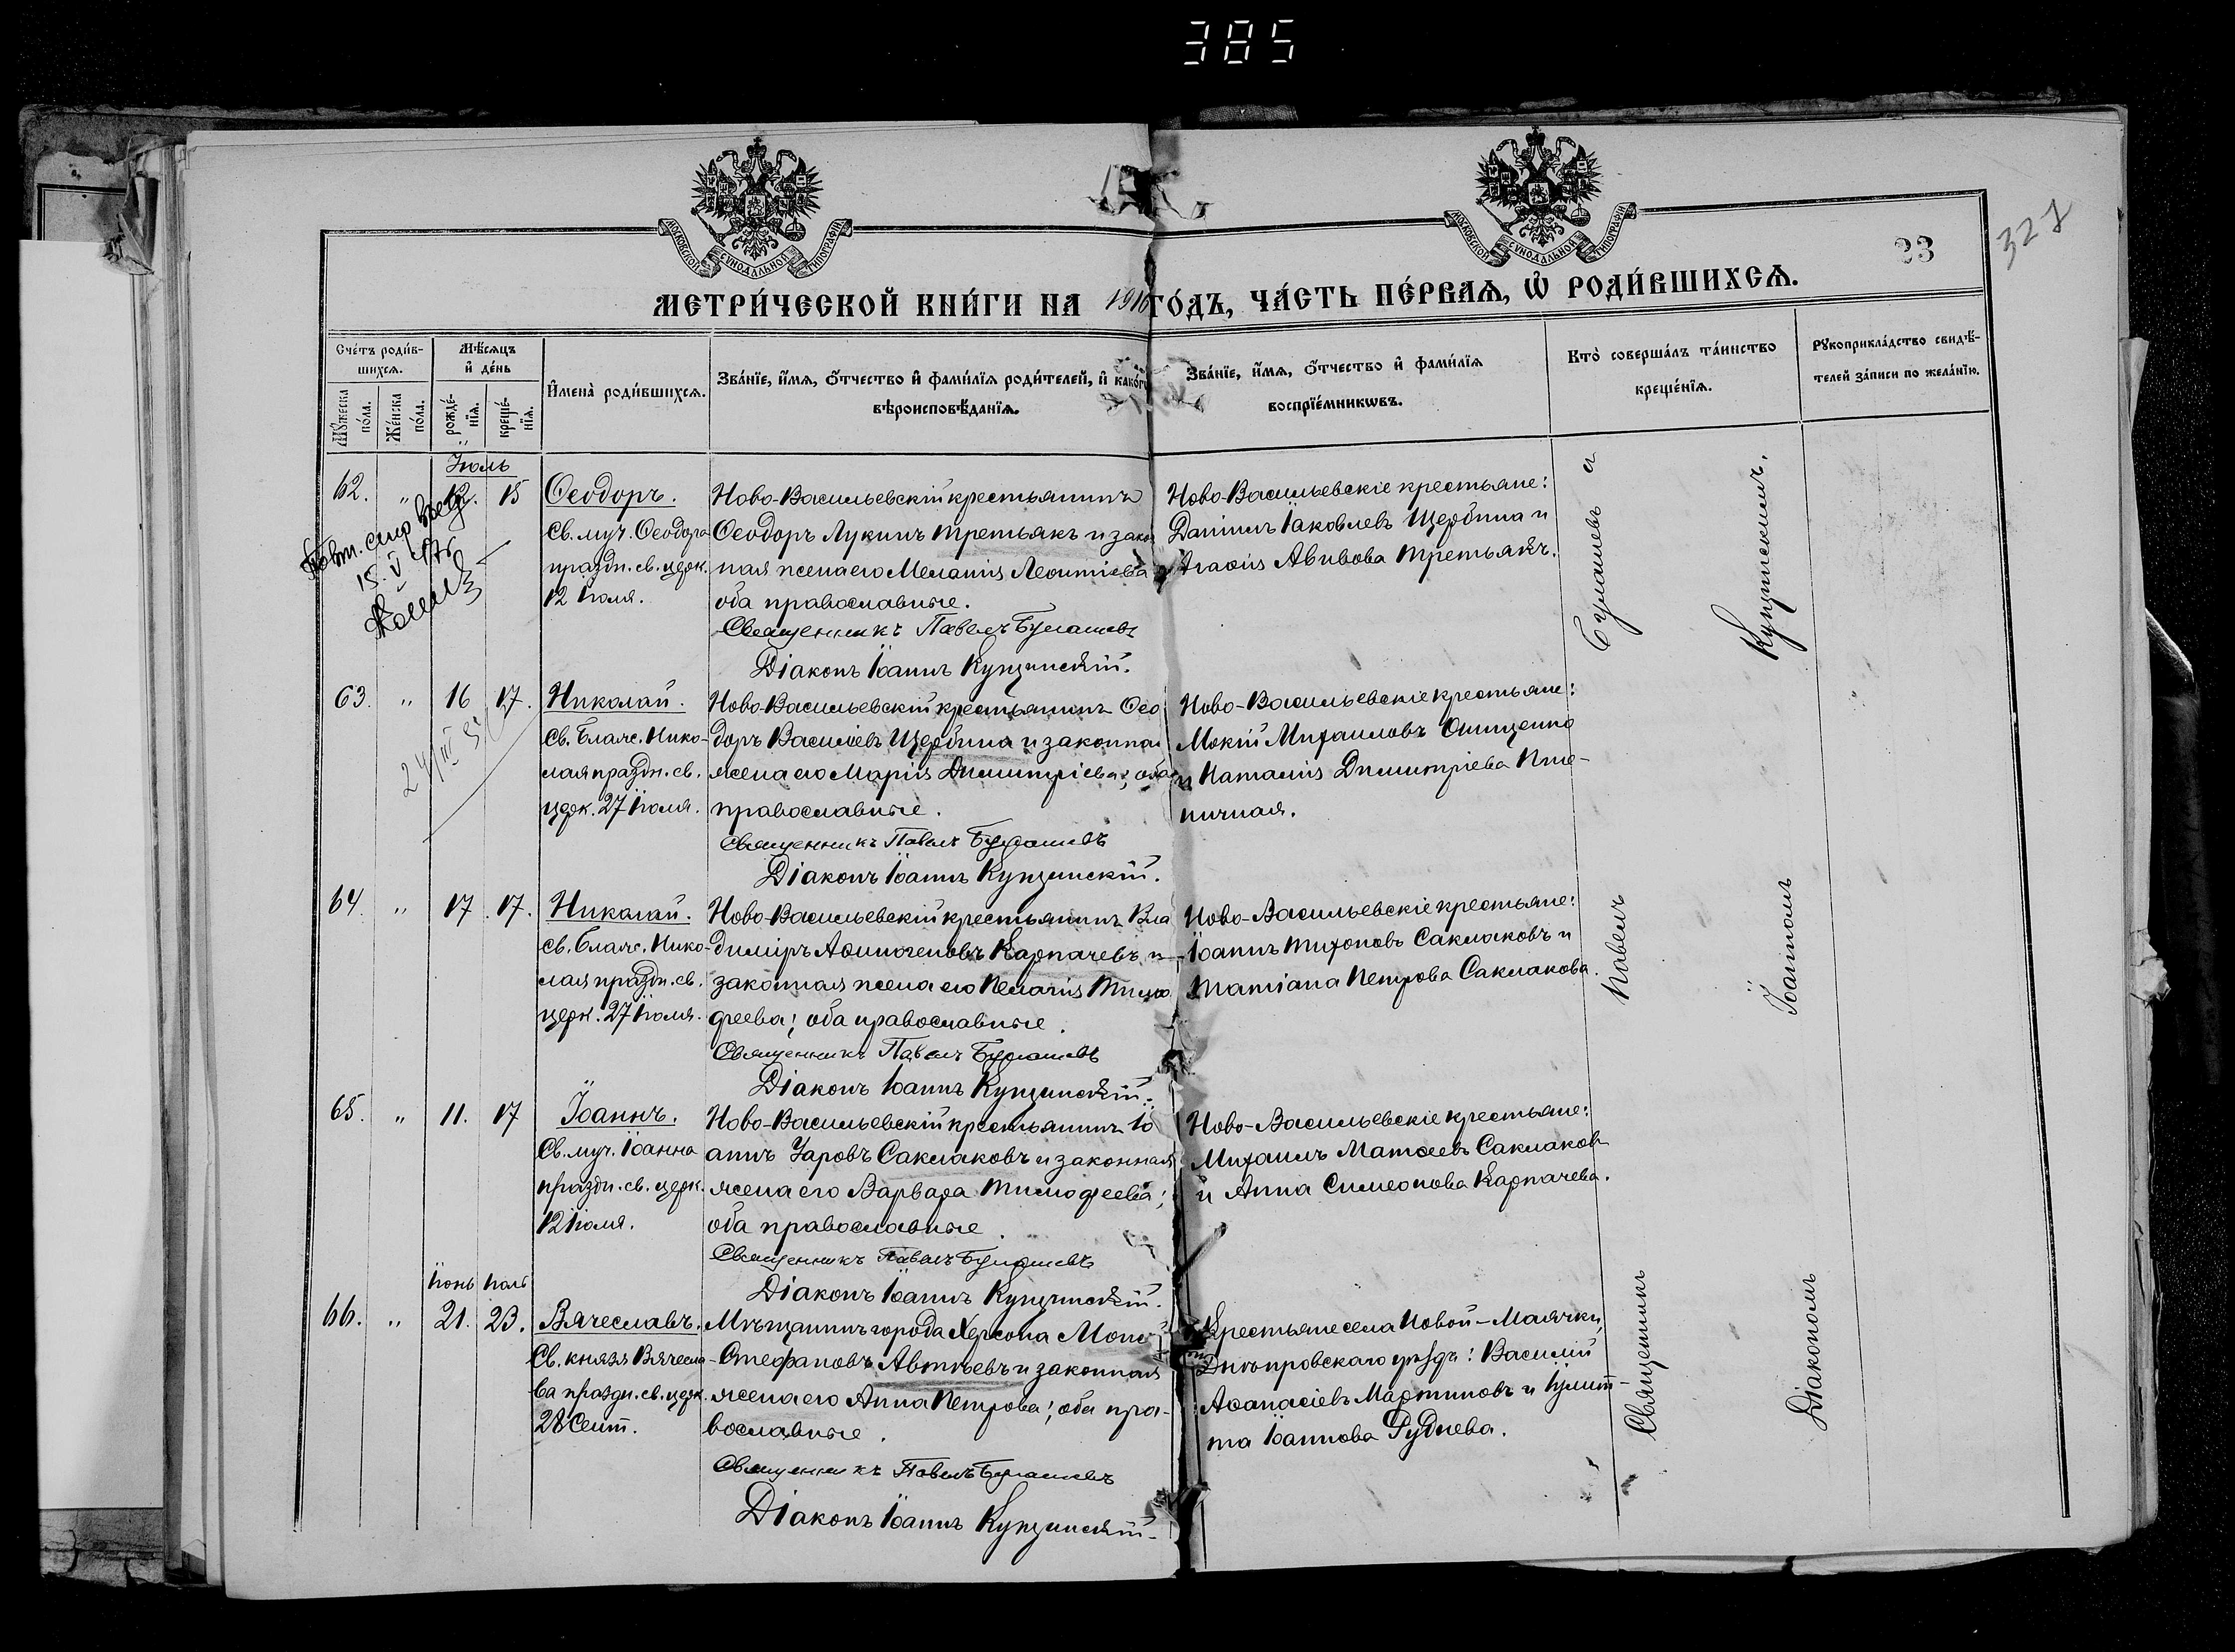 385
327
23
МОСКОВСКОЙ СУНОДАЛЬНОЙ ТИПОГРАФІИ
МОСКОВСКОЙ СУНОДАЛЬНОЙ ТИПОГРАФІИ
МЕТРИ́ЧЕСКОЙ КНИ́ГИ НА 1916 ГО́ДЪ, ЧА́СТЬ ПЕ́РВАѦ, Ѡ РОДИ́ВШИХСѦ.
Сче́тъ роди́в-
шихсѧ.
Мꙋ́жеска по́ла.
Же́нска по́ла.
Мѣ́сѧцъ
и де́нь
рожде́-
нїѧ.
креще́-
нїѧ.
Имена̀ роди́вшихсѧ.
Зва́нїе, и́мѧ, о́тчество и фами́лїѧ роди́телей, и како́гѡ
вѣроисповѣ́данїѧ.
Зва́нїе, и́мѧ, о́тчество и фами́лїѧ
воспрїе́мникѡвъ.
Кто̀ соверша́лъ та́инство
креще́нїѧ.
Рꙋкоприкла́дство свидѣ́-
телей за́писи по жела́нїю.
Іюль
62. " 12. 15
Ѳеодоръ.
Св. муч. Ѳеодора
праздн. св. церк.
12 Іюля.
Ново-Васильевскій крестьянинъ
Ѳеодоръ Лукинъ Третьякъ и закон
ная жена его Меланія Леонтіева
оба православные.
Священникъ Павелъ Булашевъ
Діаконъ Іоаннъ Купчинскій.
Ново-Васильевскіе крестьяне:
Даніилъ Іаковлевъ Щербина и
Агаѳія Авивова Третьякъ.
15. V
63. " 16 17.
24/III
Николай.
Св. Блаж. Нико-
лая праздн. св.
церк. 27 Іюля.
Ново-Васильевскій крестьянинъ Ѳео
доръ Василіевъ Щербина и законная
жена его Марія Димитріева; оба
православные.
Священникъ Павелъ Булашевъ
Діаконъ Іоаннъ Купчинскій.
Ново-Васильевскіе крестьяне:
Мокій Михаиловъ Онищенко
и Наталія Димитріева Пше-
ничная.
64. " 17. 17.
Николай.
Св. Блаж. Нико-
лая праздн. св.
церк. 27 Іюля.
Ново-Васильевскій крестьянинъ Вла
диміръ Аѳиногеновъ Карпачевъ и
законная жена его Пелагія Тимо
феева; оба православные.
Священникъ Павелъ Булашевъ
Діаконъ Іоаннъ Купчинскій.
Ново-Васильевскіе крестьяне:
Іоаннъ Тихоновъ Саклаковъ и
Татіана Петрова Саклакова.
65. " 11. 17
Іоаннъ.
Св. муч. Іоанна
праздн. св. церк.
12 Іюля.
Ново-Васильевскій крестьянинъ Іо
аннъ Уаровъ Саклаковъ и законная
жена его Варвара Тимофеева;
оба православные.
Священникъ Павелъ Булашевъ
Діаконъ Іоаннъ Купчинскій.
Ново-Васильевскіе крестьяне:
Михаилъ Матѳеевъ Саклаковъ
и Анна Симеонова Карпачева.
Іюнь Іюль
66. " 21. 23.
Вячеславъ.
Св. князя Вячесла-
ва праздн. св. церк.
28 Сент.
Мѣщанинъ города Херсона
Стефановъ Автѣевъ и законная
жена его Анна Петрова; оба пра-
вославные.
Священникъ Павелъ Булашевъ
Діаконъ Іоаннъ Купчинскій.
Крестьяне села Новой-Маячки,
Днѣпровскаго уѣзда: Василій
Аѳанасіевъ Мартиновъ и Іулит-
та Іоаннова Руднева.
Священникъ Павелъ Булашевъ съ
Діакономъ Іоанномъ Купчинскимъ.